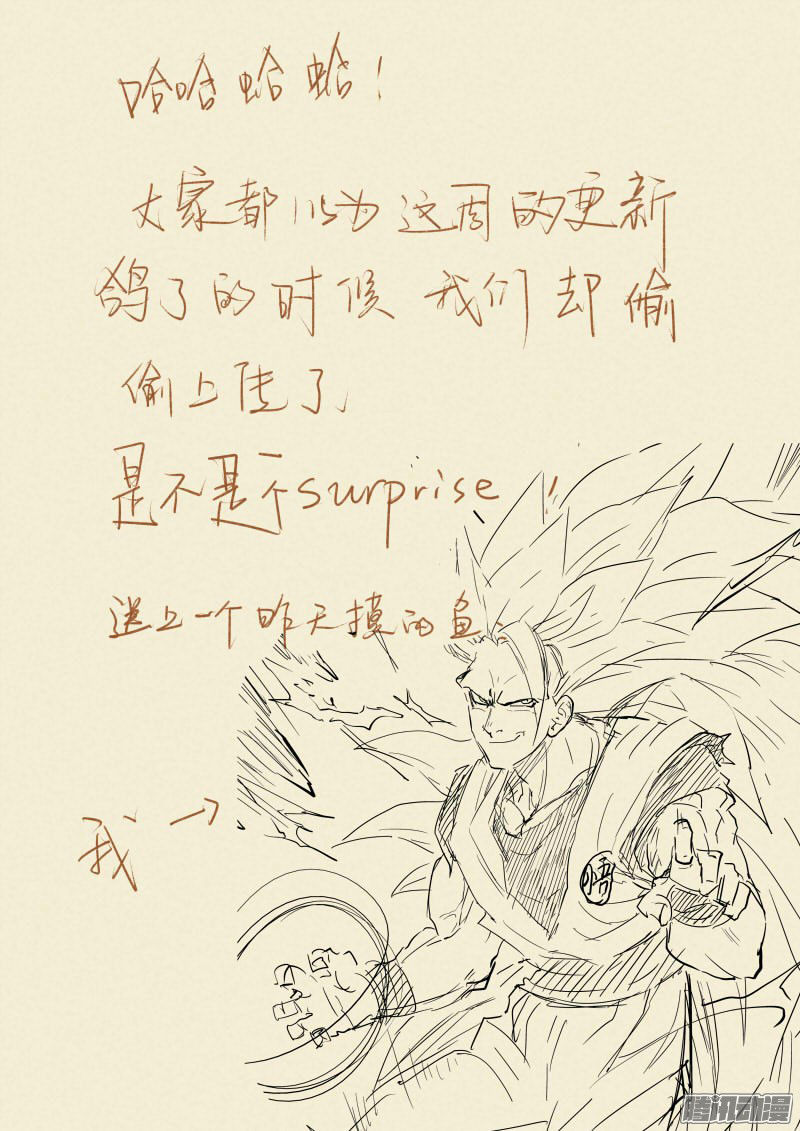 哈哈蛤蛤！
大家都以为这周的更新
鸽了的时候 我们却偷
偷上传了
是不是个surprise！
送上一个昨天摸的鱼、
我→
悟
腾讯动漫